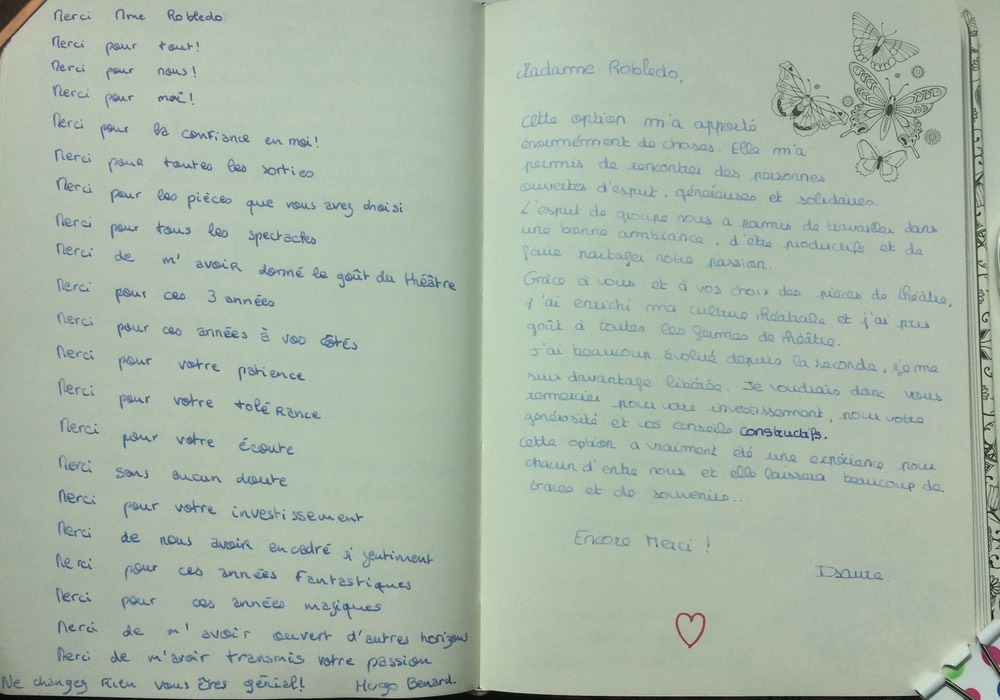 Merci Mme Robledo
Merci pour tout!
Merci pour nous!
Merci pour moi!
Merci pour la confiance en moi!
Merci pour toutes les sorties
Merci pour les pièces que vous avez choisi
Merci pour tous les spectacles
Merci de m'avoir donné le goût du théâtre
Merci pour ces 3 années
Merci pour ces années à vos côtés
Merci pour votre patience
Merci pour votre tolérance
Merci pour votre écoute
Merci sans aucun doute
Merci pour votre investissement
Merci de nous avoir encadré si gentiment
Merci pour ces années fantastiques
Merci pour ces années magiques
Merci de m'avoir ouvert d'autres horizons
Merci de m'avoir transmis votre passion
Ne changez rien vous êtes génial! Hugo Benard.
Madame Robledo,
Cette option m'a apporté
énormément de choses. Elle m'a
permis de rencontrer des personnes
ouvertes d'esprit, généreuses et solidaires.
L'esprit de groupe nous a permis de travailler dans
une bonne ambiance, d'être productifs et de
faire partager notre passion.
Grâce à vous et à vos choix des pièces de théâtre,
j'ai enrichi ma culture théâtrale et j'ai pris
goût à toutes les formes de théâtre.
J'ai beaucoup évolué depuis la seconde, je me
suis davantage libérée. Je voudrais donc vous
remercier pour votre investissement, pour votre
générosité et vos conseils constructifs.
Cette option a vraiment été une expérience pour
chacun d'entre nous et elle laissera beaucoup de
traces et de souvenirs...
Encore Merci !
Isaure